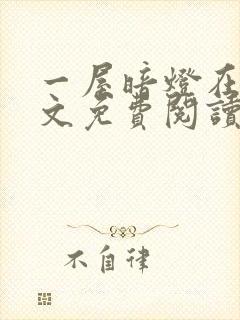 一屋暗燈在
文免費閱讀
不自律